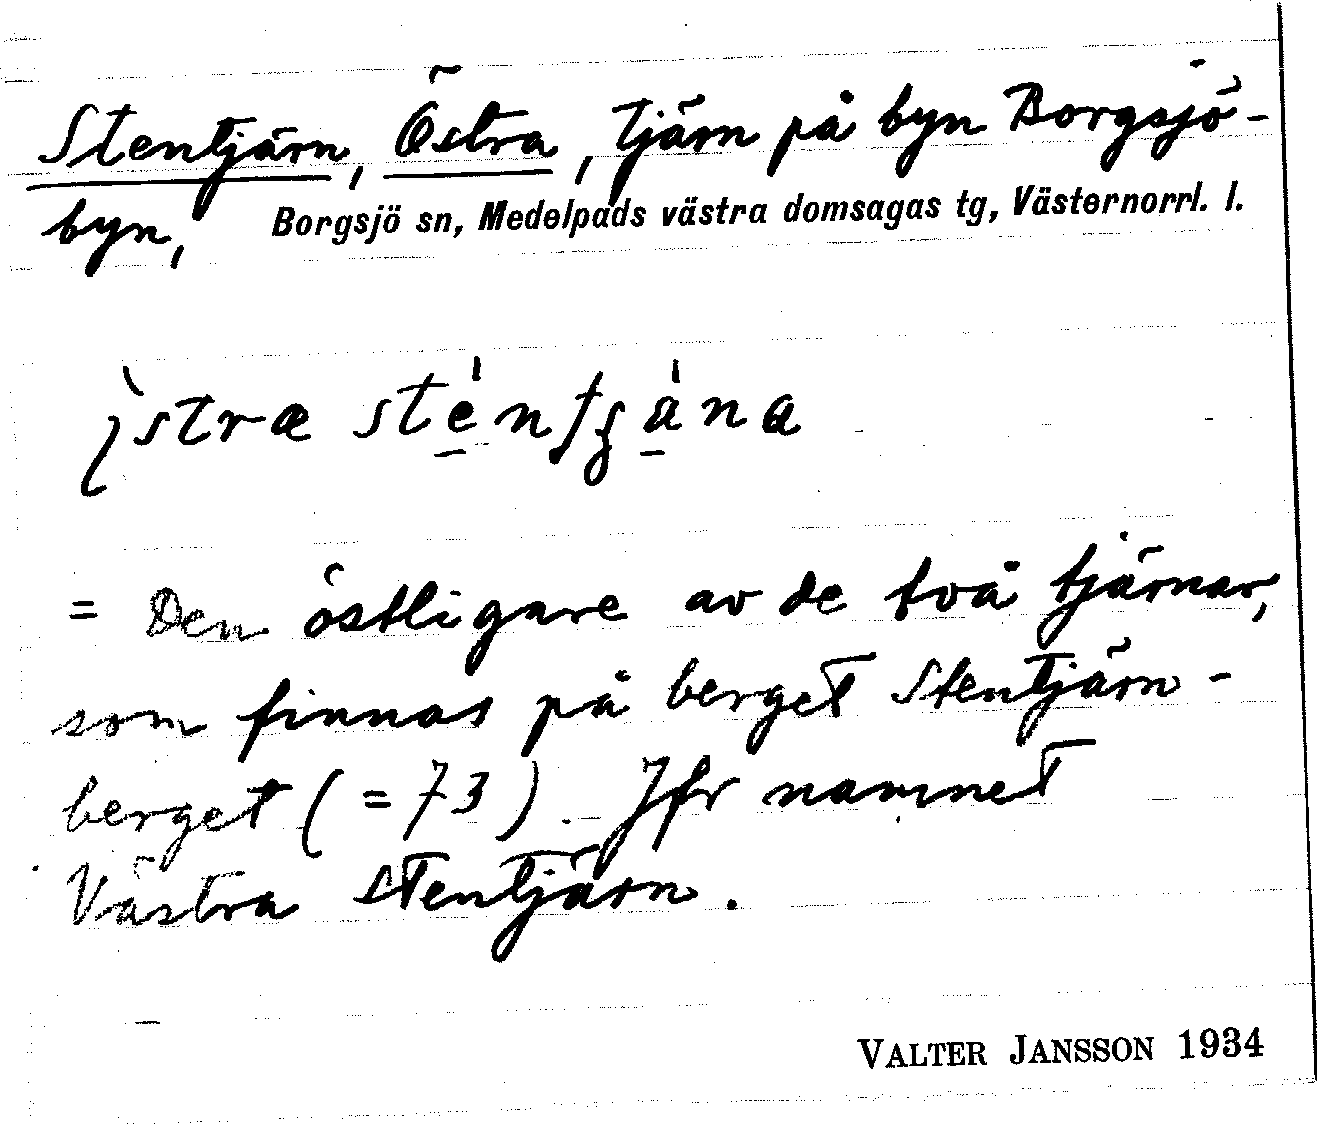 Stentjärn, Östra, tjärn på byn Borgsjö-
byn, Borgsjö sn, Medelpads västra domsagas tg, Västernorrl. l.
= Den östligare av de två tjärnar,
som finnas på berget Stentjärn-
berget (=73). Jfr namnet
Västra Stentjärn.
VALTER JANSSON 1934